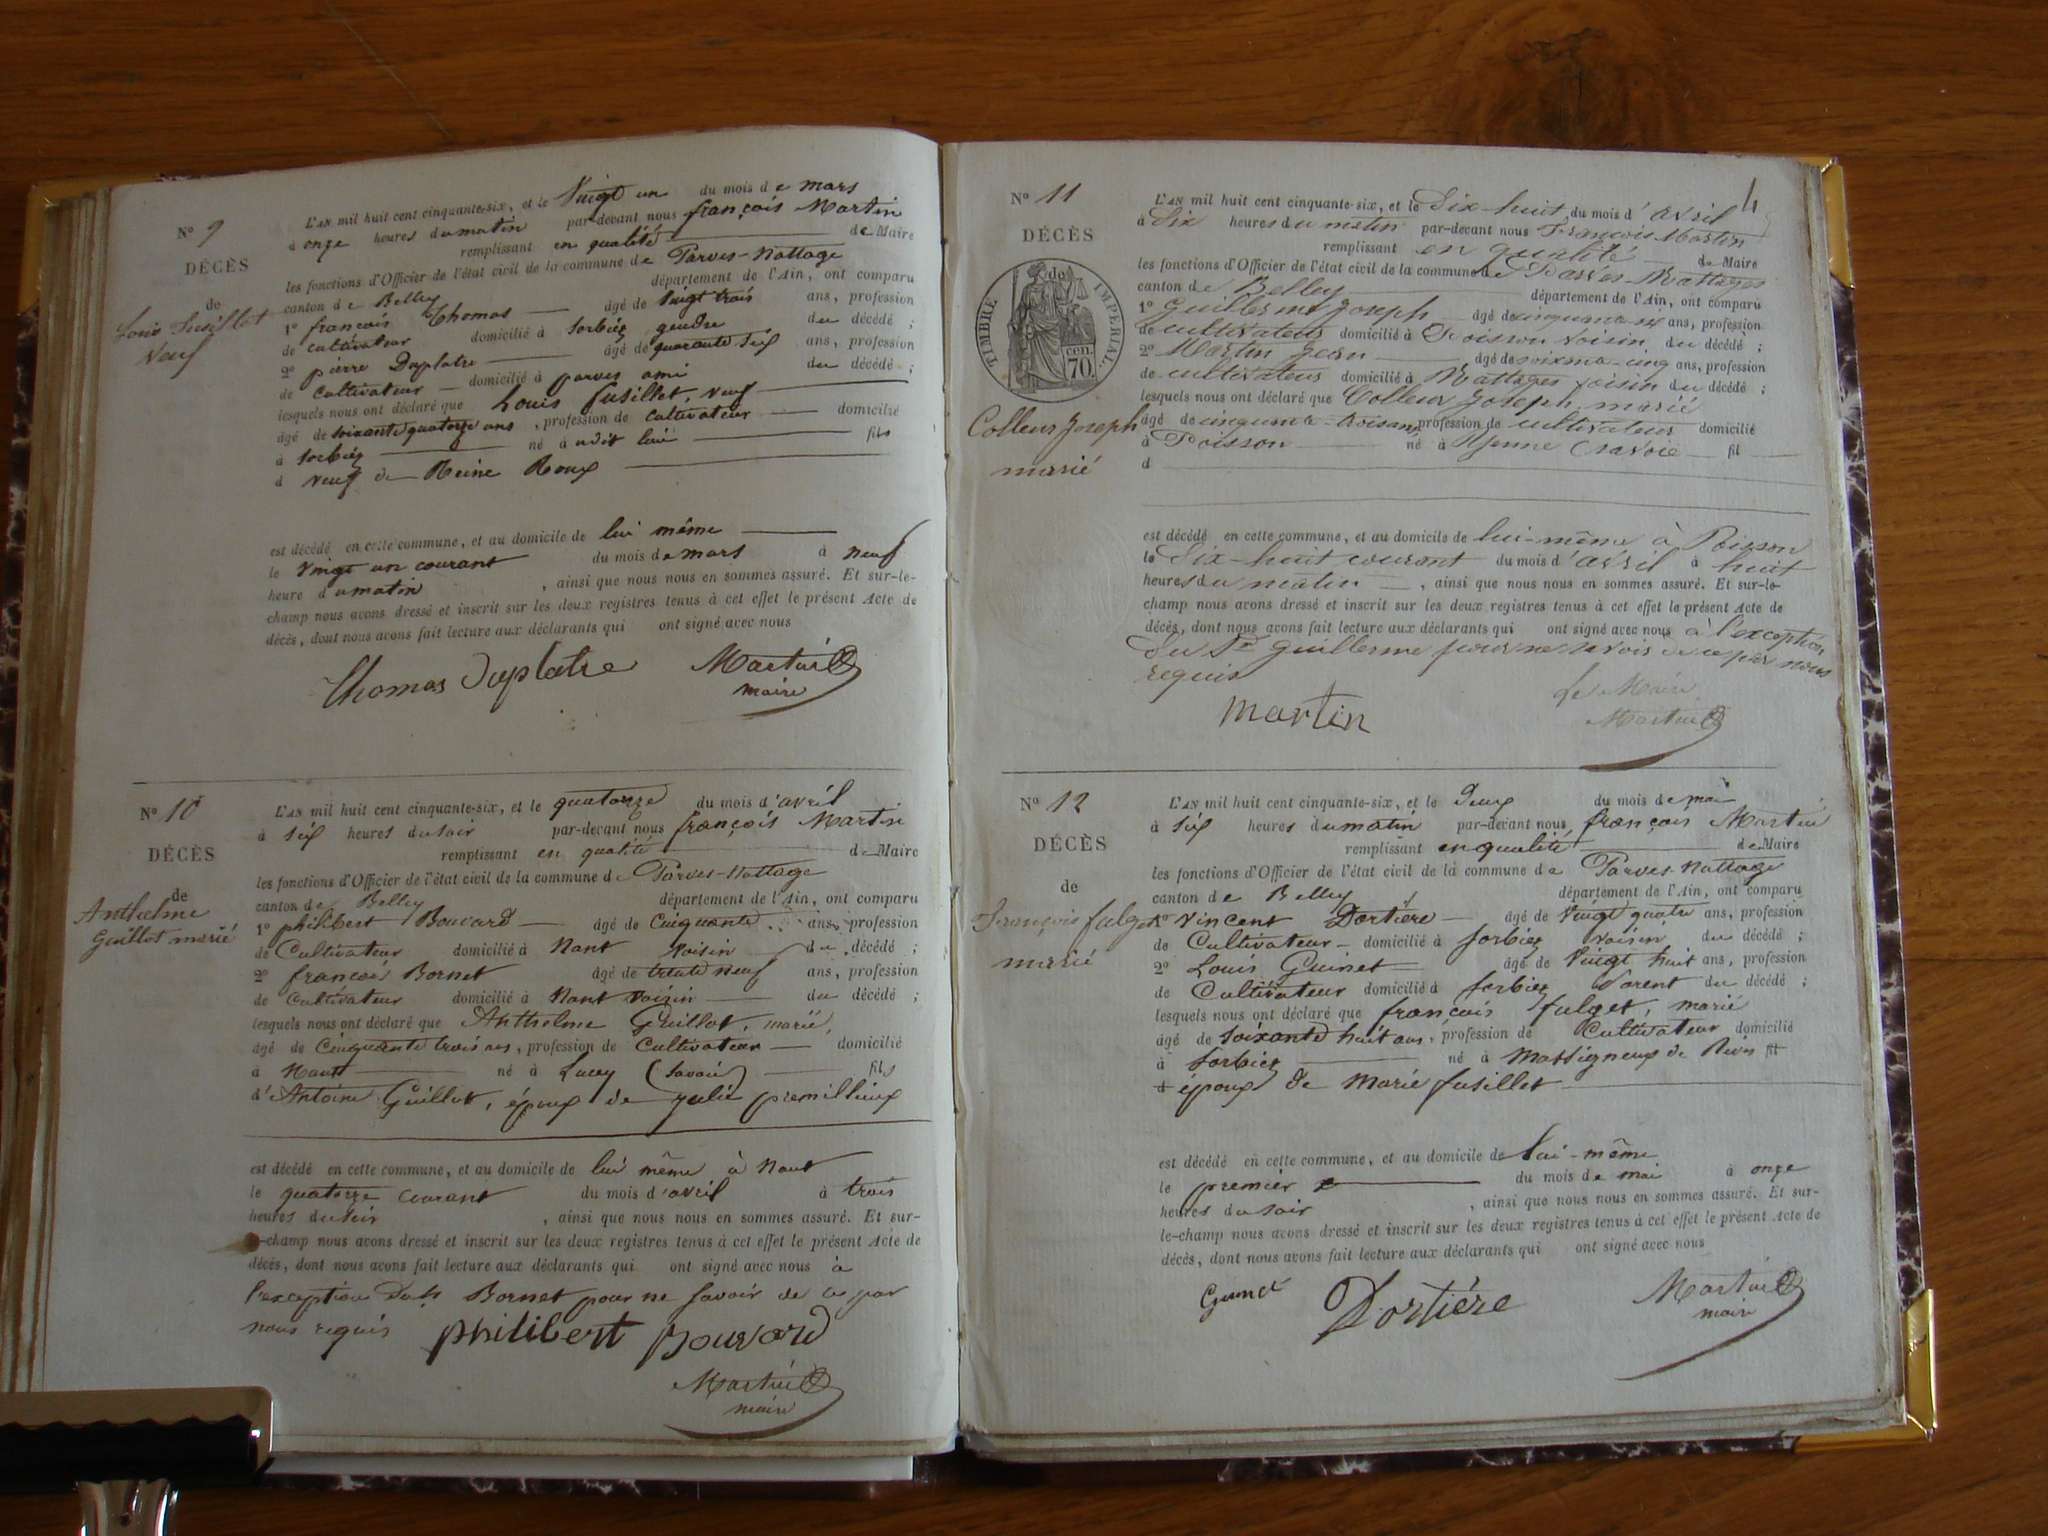 N° 9
DÉCÈS
de
Louis Fusillet
Veuf
L'AN mil huit cent cinquante-six, et le Vingt un du mois de mars
à onze heures du matin par-devant nous françois Martin
remplissant en qualité de Maire
les fonctions d'Officier de l'état civil de la commune de Parves-Nattage
canton de Belley département de l'Ain, ont comparu
1° françois Thomas âgé de Vingt trois ans, profession
de cultivateur domicilié à Sorbiez gendre du décédé ;
2° pierre Duplatre âgé de quarante six ans, profession
de Cultivateur domicilié à parves ami du décédé ;
lesquels nous ont déclaré que Louis fusillet, veuf
âgé de soixante quatorze ans, profession de cultivateur domicilié
à Sorbiez né à udit lieu fils
d veuf de Reine Roux
est décédé en cette commune, et au domicile de lui même
le Vingt un courant du mois de mars à neuf
heure du matin, ainsi que nous nous en sommes assuré. Et sur-le-
champ nous avons dressé et inscrit sur les deux registres tenus à cet effet le présent Acte de
décès, dont nous avons fait lecture aux déclarants qui ont signé avec nous
Thomas Duplatre Martin
maire
N° 10
DÉCÈS
de
Anthelme
Guillot marié
L'AN mil huit cent cinquante-six, et le quatorze du mois d'avril
à six heures du soir par-devant nous françois Martin
remplissant en qualité de Maire
les fonctions d'Officier de l'état civil de la commune de Parves-Nattage
canton de Belley département de l'Ain, ont comparu
1° philibert Bouvard âgé de Cinquante ans, profession
de Cultivateur domicilié à Nant Voisin du décédé ;
2° françois Bornet âgé de trente neuf ans, profession
de Cultivateur domicilié à Nant Voisin du décédé ;
lesquels nous ont déclaré que Anthelme Guillot, marié,
âgé de Cinquante trois ans, profession de Cultivateur domicilié
à Nant né à Lucey (Savoie) fils
d'Antoine Guillot, époux de Julie premillieux
est décédé en cette commune, et au domicile de lui même à Nant
le quatorze courant du mois d'avril à trois
heures du soir, ainsi que nous nous en sommes assuré. Et sur-
le-champ nous avons dressé et inscrit sur les deux registres tenus à cet effet le présent Acte de
décès, dont nous avons fait lecture aux déclarants qui ont signé avec nous à
l'exception Bornet pour ne Savoir de ce par
nous requis philibert Bouvard
Martin
maire
4
N° 11
DÉCÈS
TIMBRE IMPÉRIAL
de
cen.
70.
Colleur Joseph
marié
L'AN mil huit cent cinquante-six, et le Dix-huit du mois d'avril
à Dix heures du matin par-devant nous François Martin
remplissant en qualité de Maire
les fonctions d'Officier de l'état civil de la commune de Parves Nattages
canton de Belley département de l'Ain, ont comparu
1° Guillerme Joseph âgé de cinquante-six ans, profession
de cultivateur domicilié à Poisson voisin du décédé ;
2° Martin Jean âgé de soixante-cinq ans, profession
de cultivateur domicilié à Nattages voisin du décédé ;
lesquels nous ont déclaré que Colleur Joseph, marié
âgé de cinquante-trois ans profession de cultivateur domicilié
à Poisson né à Yenne (Savoie fil
d
est décédé en cette commune, et au domicile de lui-même à Poisson
le Dix-huit courant du mois d'avril à huit
heures du matin, ainsi que nous nous en sommes assuré. Et sur-le-
champ nous avons dressé et inscrit sur les deux registres tenus à cet effet le présent Acte de
décès, dont nous avons fait lecture aux déclarants qui ont signé avec nous à l'exception
du Sr Guillerme pour ne savoir de ce par nous
requis
Martin
Le Maire
Martin
N° 12
DÉCÈS
de
François fulget
marié
L'AN mil huit cent cinquante-six, et le Deux du mois de mai
à six heures du matin par-devant nous françois Martin
remplissant en qualité de Maire
les fonctions d'Officier de l'état civil de la commune de Parves Nattage
canton de Belley département de l'Ain, ont comparu
1° Vincent Dortière âgé de Vingt quatre ans, profession
de Cultivateur domicilié à Sorbiez voisin du décédé ;
2° Louis Guinet âgé de Vingt huit ans, profession
de Cultivateur domicilié à Sorbiez Parent du décédé ;
lesquels nous ont déclaré que françois fulget, marié
âgé de Soixante huit ans, profession de Cultivateur domicilié
à Sorbiez né à Massigneux de Rives fil
d époux de Marie fusillet
est décédé en cette commune, et au domicile de lui-même
le premier du mois de mai à onze
heures du soir, ainsi que nous nous en sommes assuré. Et sur-
le-champ nous avons dressé et inscrit sur les deux registres tenus à cet effet le présent Acte de
décès, dont nous avons fait lecture aux déclarants qui ont signé avec nous
Guinet Dortière Martin
maire